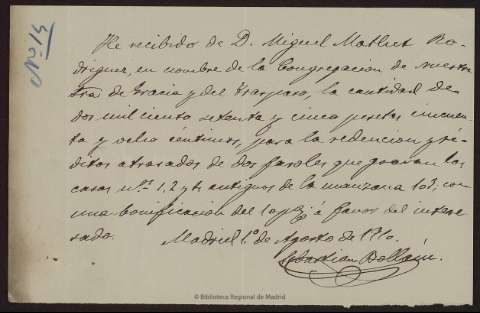 Nº 15
He recibido de D. Miguel Mathet Ro-
driguez, en nombre de la Congregacion de Nuestra
Sra. de Gracia y del Traspaso, la cantidad de
dos mil ciento setenta y cinco pesetas cincuen-
ta y ocho céntimos, para la redencion y ré-
ditos atrasados de dos faroles que gravan las
casas n.os 1, 2 y antiguos de la manzana 103, con
una bonificacion del 10 p% á favor del intere-
sado. Madrid 1º de Agosto de
Sebastian
© Biblioteca Regional de Madrid